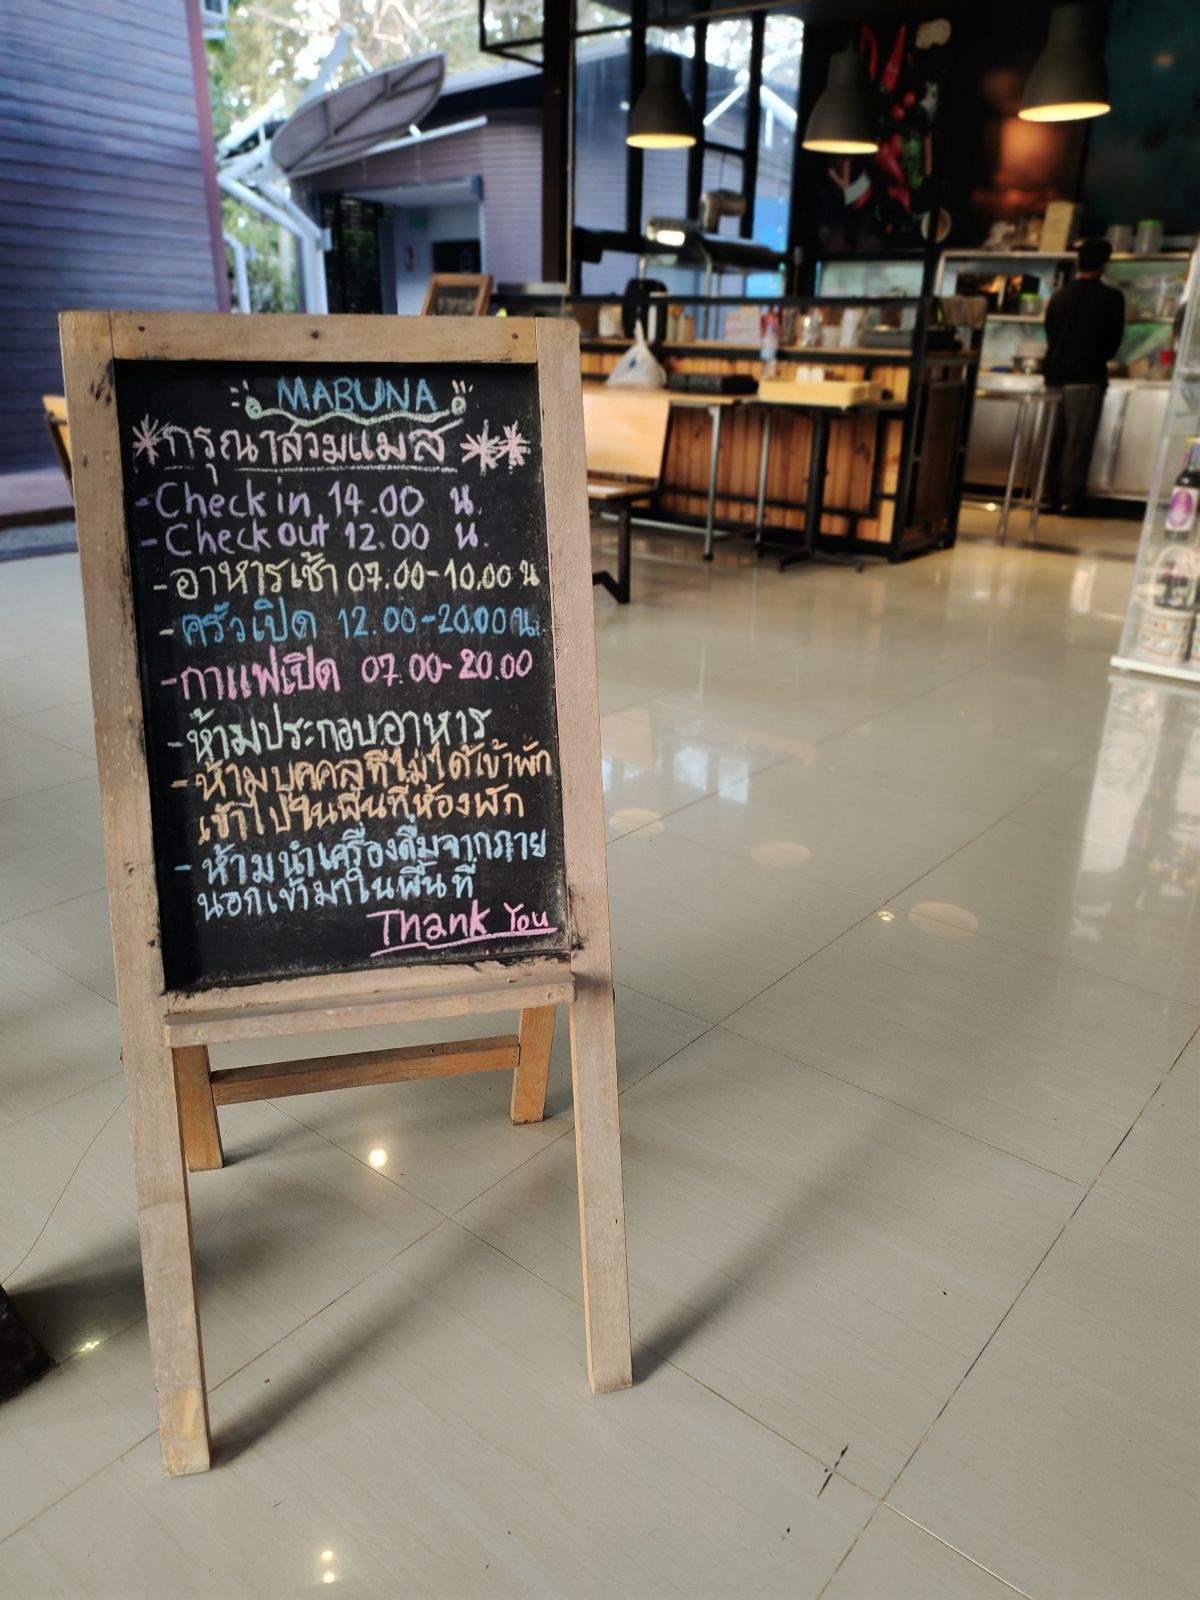 MABUNA
กรุณาสวมแมส
- Check in 14.00 น.
- Check out 12.00 น.
- อาหารเช้า 07.00-10.00 น
- ครัวเปิด 12.00-20.00 น.
- กาแฟเปิด 07.00-20.00
- ห้ามประกอบอาหาร
- ห้ามบุคคลที่ไม่ได้เข้าพัก
เข้าไปในพื้นที่ห้องพัก
- ห้ามนำเครื่องดื่มจากภาย
นอกเข้ามาในพื้นที่
Thank You